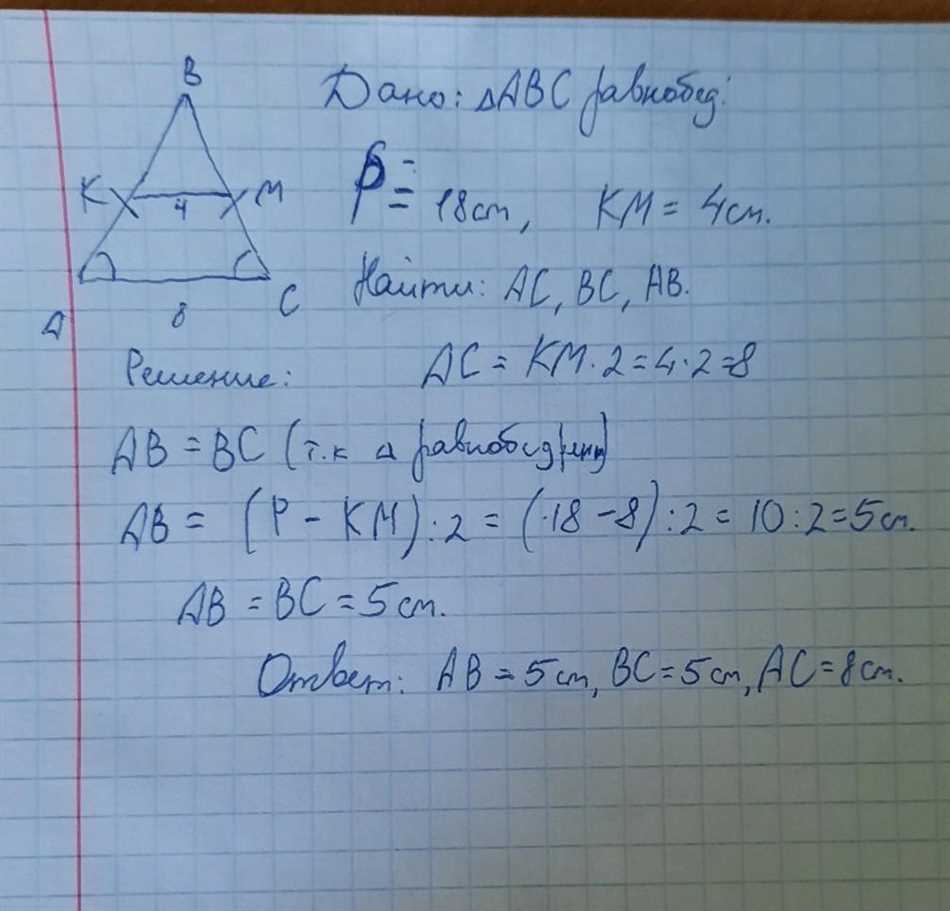 B
Дано: △ABC равнобед.
K M
4
P = 18 cm, KM = 4 см.
Найти: AC, BC, AB.
A 8 C
Решение: AC = KM · 2 = 4 · 2 = 8
AB = BC (т.к △ равнобедрен)
AB = (P - KM) : 2 = (18 - 8) : 2 = 10 : 2 = 5 см.
AB = BC = 5 см.
Ответ: AB = 5 см, BC = 5 см, AC = 8 см.